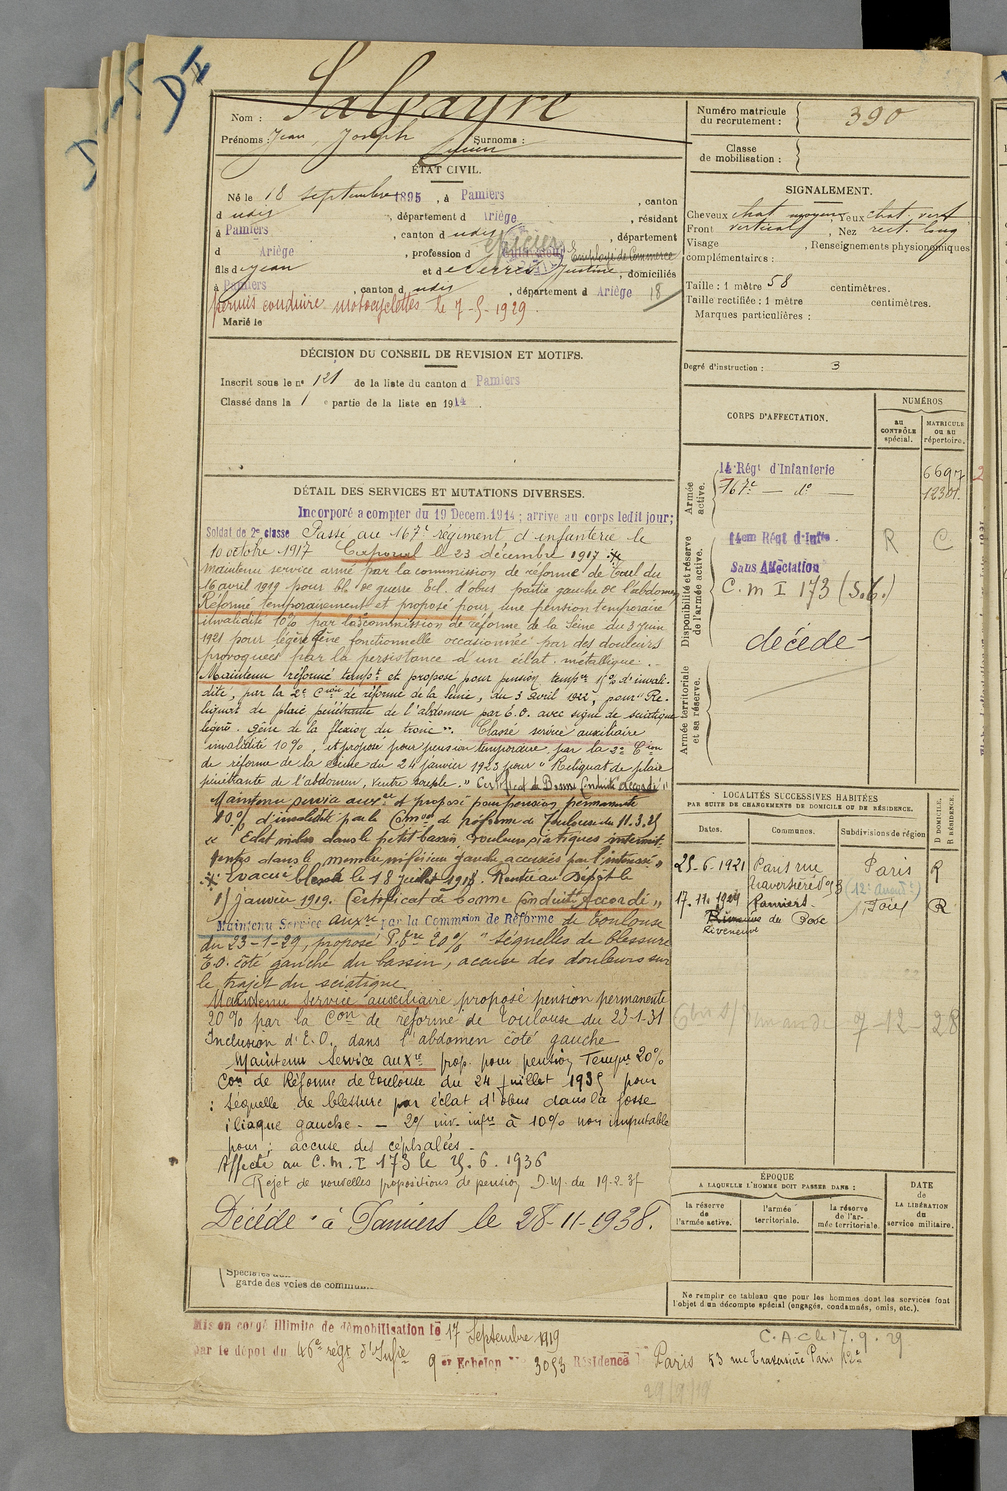 D I
Nom : Salvayre
Prénoms : Jean, Joseph Surnoms :
Lucien
ÉTAT CIVIL.
Né le 18 septembre 1895, à Pamiers, canton
d udit, département d Ariège, résidant
à Pamiers, canton d udit, département
d Ariège, profession d épicier Employé de Commerce
fils d e Jean et d e Justine, domiciliés
à Pamiers, canton d udit, département d Ariège 18
permis conduire motocyclettes le 7-5-1929.
Marié le
DÉCISION DU CONSEIL DE REVISION ET MOTIFS.
Inscrit sous le n° 121 de la liste du canton d Pamiers
Classé dans la 1 e partie de la liste en 1914.
DÉTAIL DES SERVICES ET MUTATIONS DIVERSES.
Incorporé a compter du 19 Decem. 1914; arrive au corps ledit jour;
Soldat de 2e classe Passé au 167e régiment d'infanterie le
10 octobre 1917 Caporal le 23 décembre 1917
Maintenu service armé par la commission de réforme de Toul du
16 avril 1919 pour bl. de guerre Ecl. d'obus partie gauche de l'abdomen
Réformé temporairement et proposé pour une pension temporaire
invalidité 10% par la 2e commission de réforme de la Seine du 3 juin
1921 pour légère gêne fonctionnelle occasionnée par des douleurs
provoquées par la persistance d'un éclat métallique.-
Maintenu réformé tempt et proposé pour pension tempre 15% d'invali-
dité, par la 2e Cion de réforme de la Seine, du 3 avril 1922, pour "Re-
liquat de plaie pénétrante de l'abdomen par E.O. avec signe de sciatique
légère. Gêne de la flexion du tronc". Classé service auxiliaire
invalidité 10%, et proposé pour pension temporaire par la 2e Cion
de réforme de la Seine du 24 janvier 1923 pour "Reliquat de plaie
pénétrante de l'abdomen, ventre souple." Certificat de Bonne Conduite accordé"
Maintenu service auxre et proposé pour pension permanente
10% d'invalidité par la Comon de réforme de Toulouse du 11.3.25
" Eclat inclus dans le petit bassin, douleurs sciatiques intermit-
tentes dans le membre inférieur gauche accusées par l'intéressé"
Evacué blessé le 18 juillet 1918. Rentré au Dépôt le
15 janvier 1919. Certificat de bonne Conduite "Accordé"
Maintenu Service auxre par la Commsion de Réforme de Toulouse
du 23-1-29, proposé Pbre 20% "Séquelles de blessure
E.O. côté gauche du bassin, accuse des douleurs sur
le trajet du sciatique
Maintenu Service auxiliaire, proposé pension permanente
20% par la Con de réforme de Toulouse du 23-1-31
Inclusion d'E.O. dans l'abdomen côté gauche
Maintenu Service auxre prop. pour pension Tempre 20%
Con de Réforme de Toulouse du 24 juillet 1935 pour
: Séquelle de blessure par éclat d'obus dans la fosse
iliaque gauche. - 2° inv. infre à 10% non imputable
pour ; accuse des céphalées -
Affecté au C.M.I 173 le 25.6.1936
Rejet de nouvelles propositions de pension D.M. du 19-2-37
Décédé à Pamiers le 28-11-1938.
garde des voies de commun
Mis en congé illimité de démobilisation le 17 Septembre 1919
par le dépôt du 46e régt d'Infie
9 er Echelon N° 3053 Résidence Paris 53 rue Traversière Paris 12e
29/9/19
Numéro matricule
du recrutement : 390
Classe
de mobilisation :
SIGNALEMENT.
Cheveux chat moyen, Yeux chat. vert
Front vertical, Nez rect. long
Visage , Renseignements physionomiques
complémentaires :
Taille : 1 mètre 58 centimètres.
Taille rectifiée : 1 mètre centimètres.
Marques particulières :
Degré d'instruction : 3
CORPS D'AFFECTATION.
NUMÉROS
au
CONTRÔLE
spécial.
MATRICULE
OU AU
répertoire.
Armée
active.
14e Régt d'Infanterie 6697
167e — do — 12301
Disponibilité et réserve
de l'armée active.
14em Régt d'Inf R. C
Sans Affectation
C. M I 173 (S.G.)
décédé
Armée territoriale
et sa réserve.
LOCALITÉS SUCCESSIVES HABITÉES
PAR SUITE DE CHANGEMENTS DE DOMICILE OU DE RÉSIDENCE.
Dates. Communes. Subdivisions de région. D DOMICILE. R RÉSIDENCE.
25-6-1921 Paris rue Paris R
Traversière no 53 (12e Arrondt)
17.11.1924 Pamiers Foix R
Rieucros de Foix
7-12 28
ÉPOQUE
A LAQUELLE L'HOMME DOIT PASSER DANS :
la réserve
de
l'armée active.
l'armée
territoriale.
la réserve
de l'ar-
mée territoriale.
DATE
de
LA LIBÉRATION
du
service militaire.
Ne remplir ce tableau que pour les hommes dont les services font
l'objet d'un décompte spécial (engagés, condamnés, omis, etc.).
C.A.C le 17.9.29